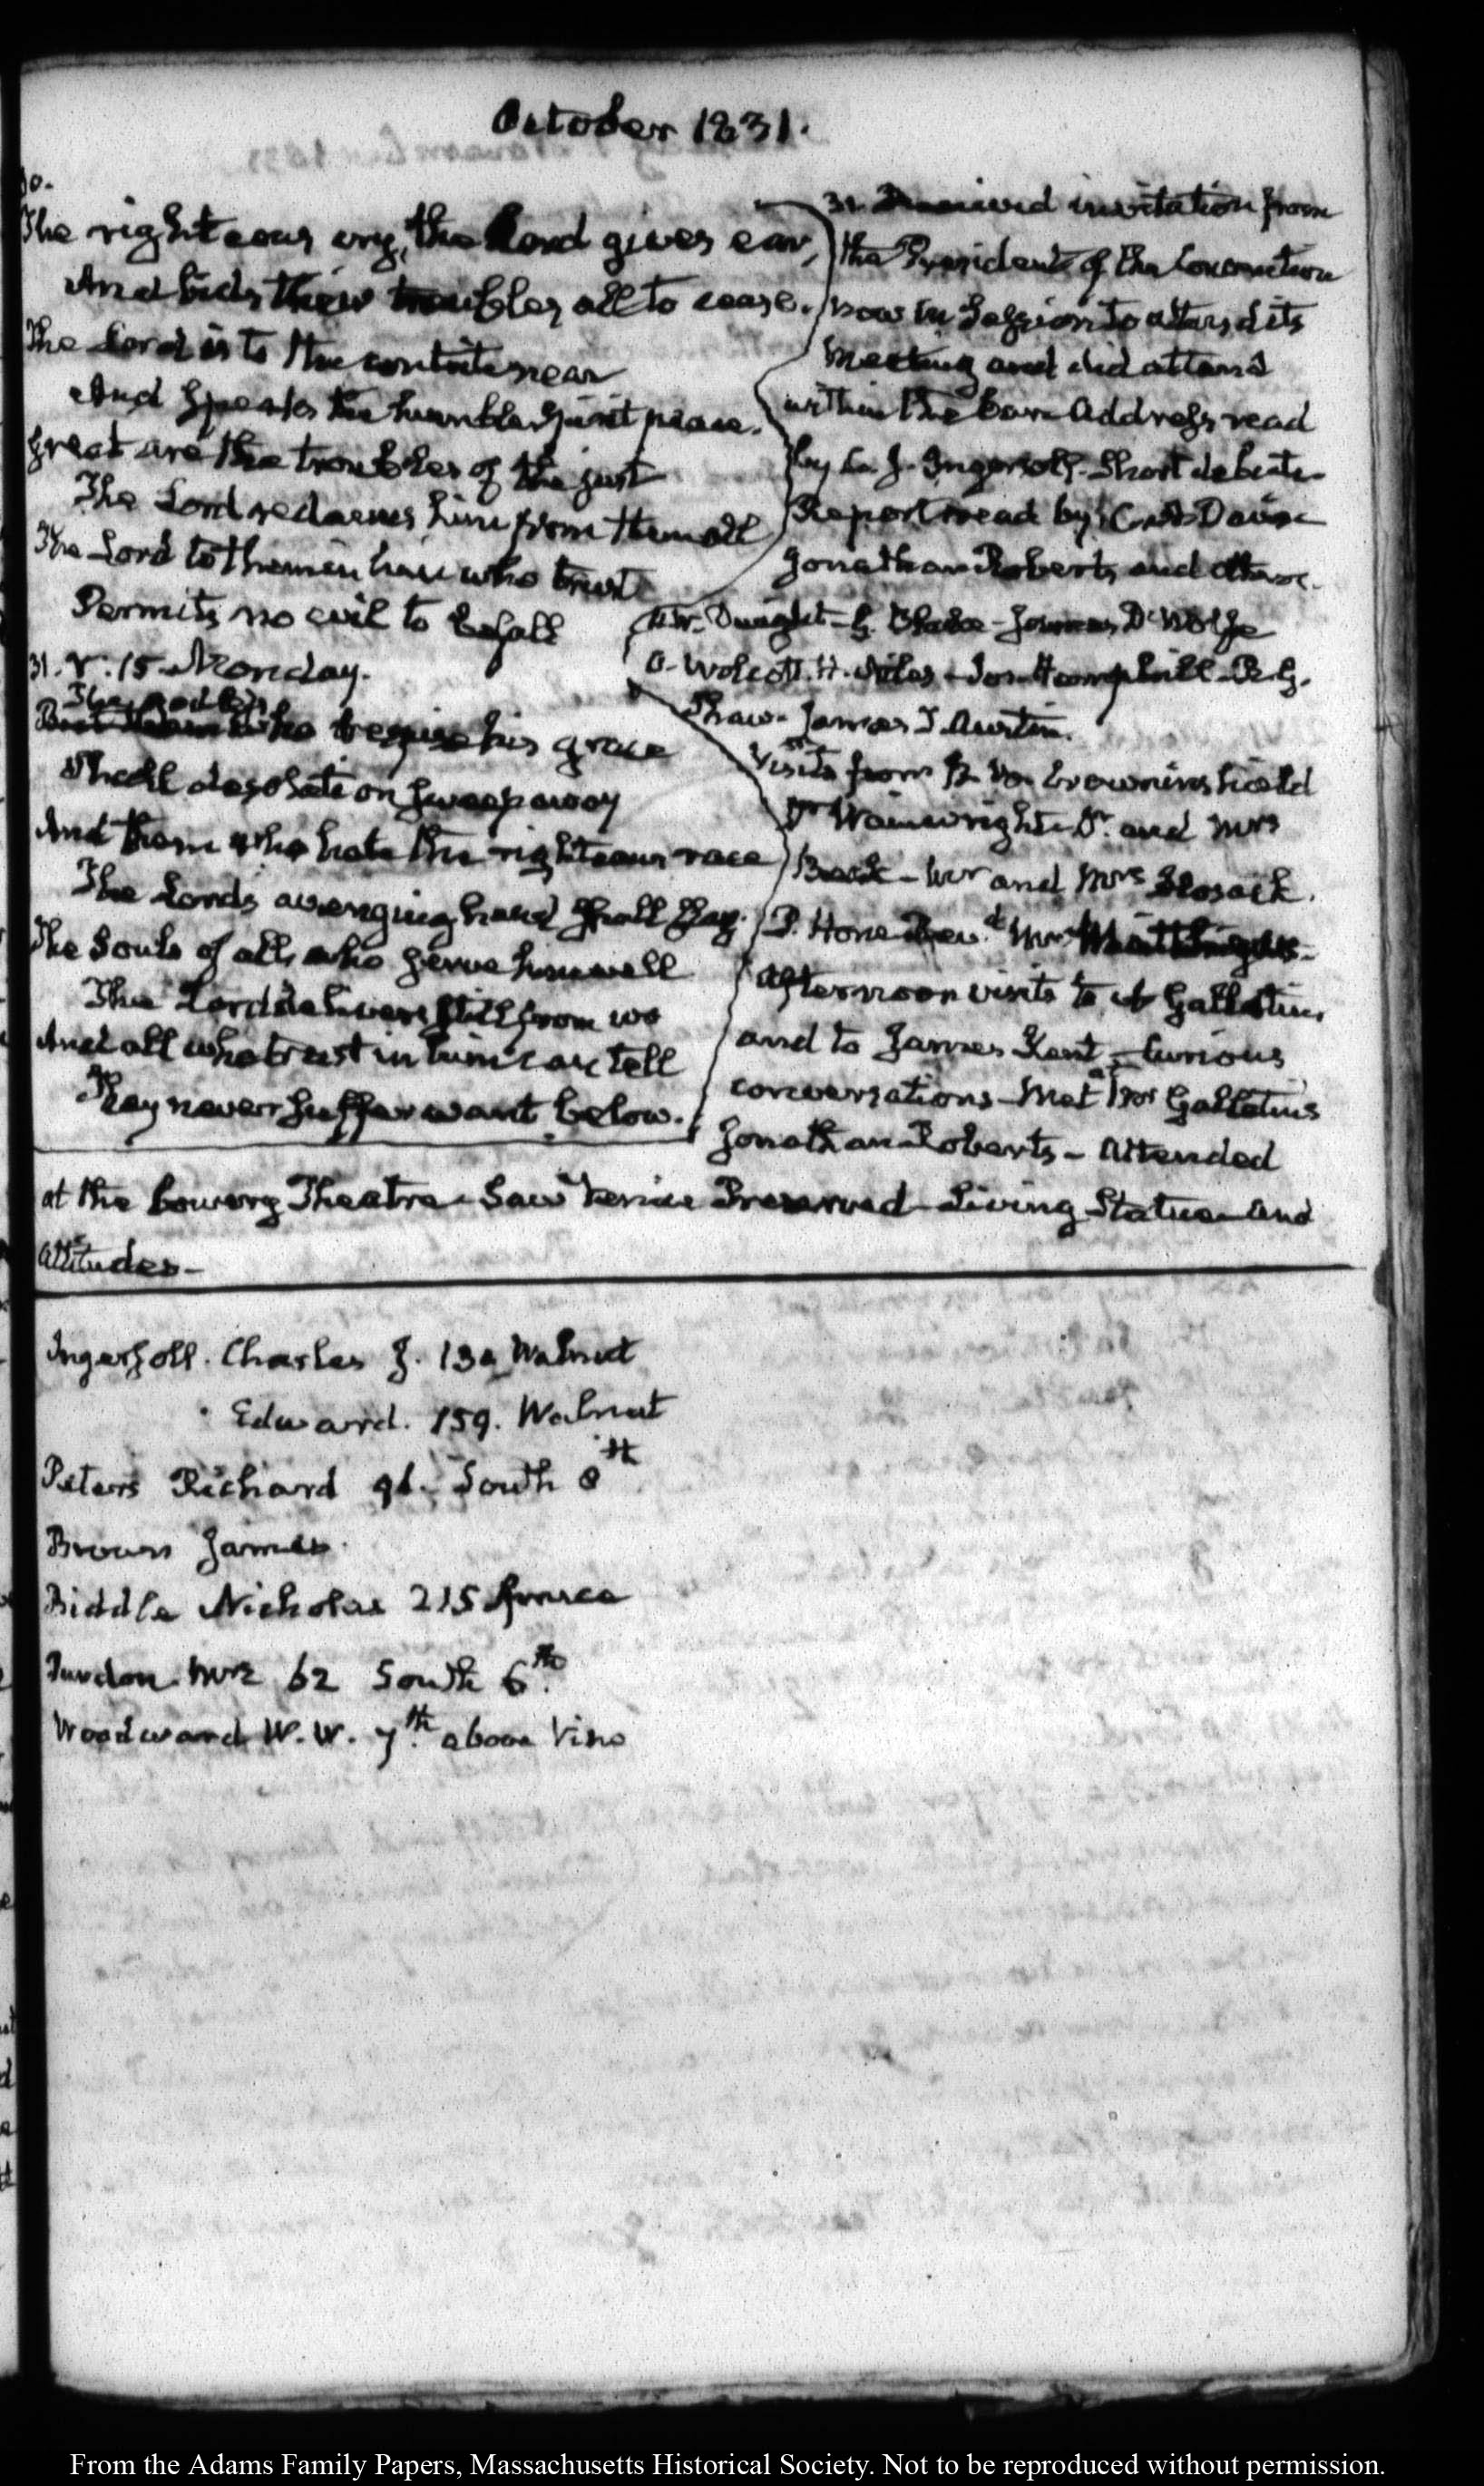 October 1831.
30.
The righteous cry, the Lord gives ear,
And bids their troubles all to cease.
The Lord is to the contrite near
And speaks the humble spirit peace.
Great are the troubles of the just
The Lord redeems him from them all
The Lord to them in him who trust
Permits no evil to befall
31. V. 15 Monday.
The godless
who his grace
Shall desolation sweep away
And them who hate the righteous race
The Lords avenging hand shall slay.
The Souls of all, who serve him well
The Lord delivers still from wo
And all who trust in him can tell
They never suffer want below.
31. Received invitation from
the President of the Convention
now in Session to attend its
meeting and did attend
within the bar. Address read
by C. J. Ingersoll. Short debate
Report read by Davis
Jonathan Roberts and others.
W. Dwight - G. Blake - James D'Wolfe
O. Wolcott. H. Niles - Jos. Hemphill - R. G.
Shaw - James T. Austin.
Visits from B. W. Crowninshield
Dr Wainwright - Dr. and Mrs
Beck - Mr and Mrs Hosack.
P. Hone
Afternoon visits to A Gallatin,
and to James Kent - Curious
conversations - Met at Mr Gallatins
Jonathan Roberts - Attended
at the Bowery Theatre - Saw Venice Preserved - Living Statue - and
Attitudes -
Ingersoll. Charles J. 130 Walnut
Edward. 159. Walnut
Peters Richard 91. South 8th
Brown James.
Biddle Nicholas 215 Spruce
Purdon. Mrs 62 South 6th.
Woodward W. W. 7th. above Vine
From the Adams Family Papers, Massachusetts Historical Society. Not to be reproduced without permission.